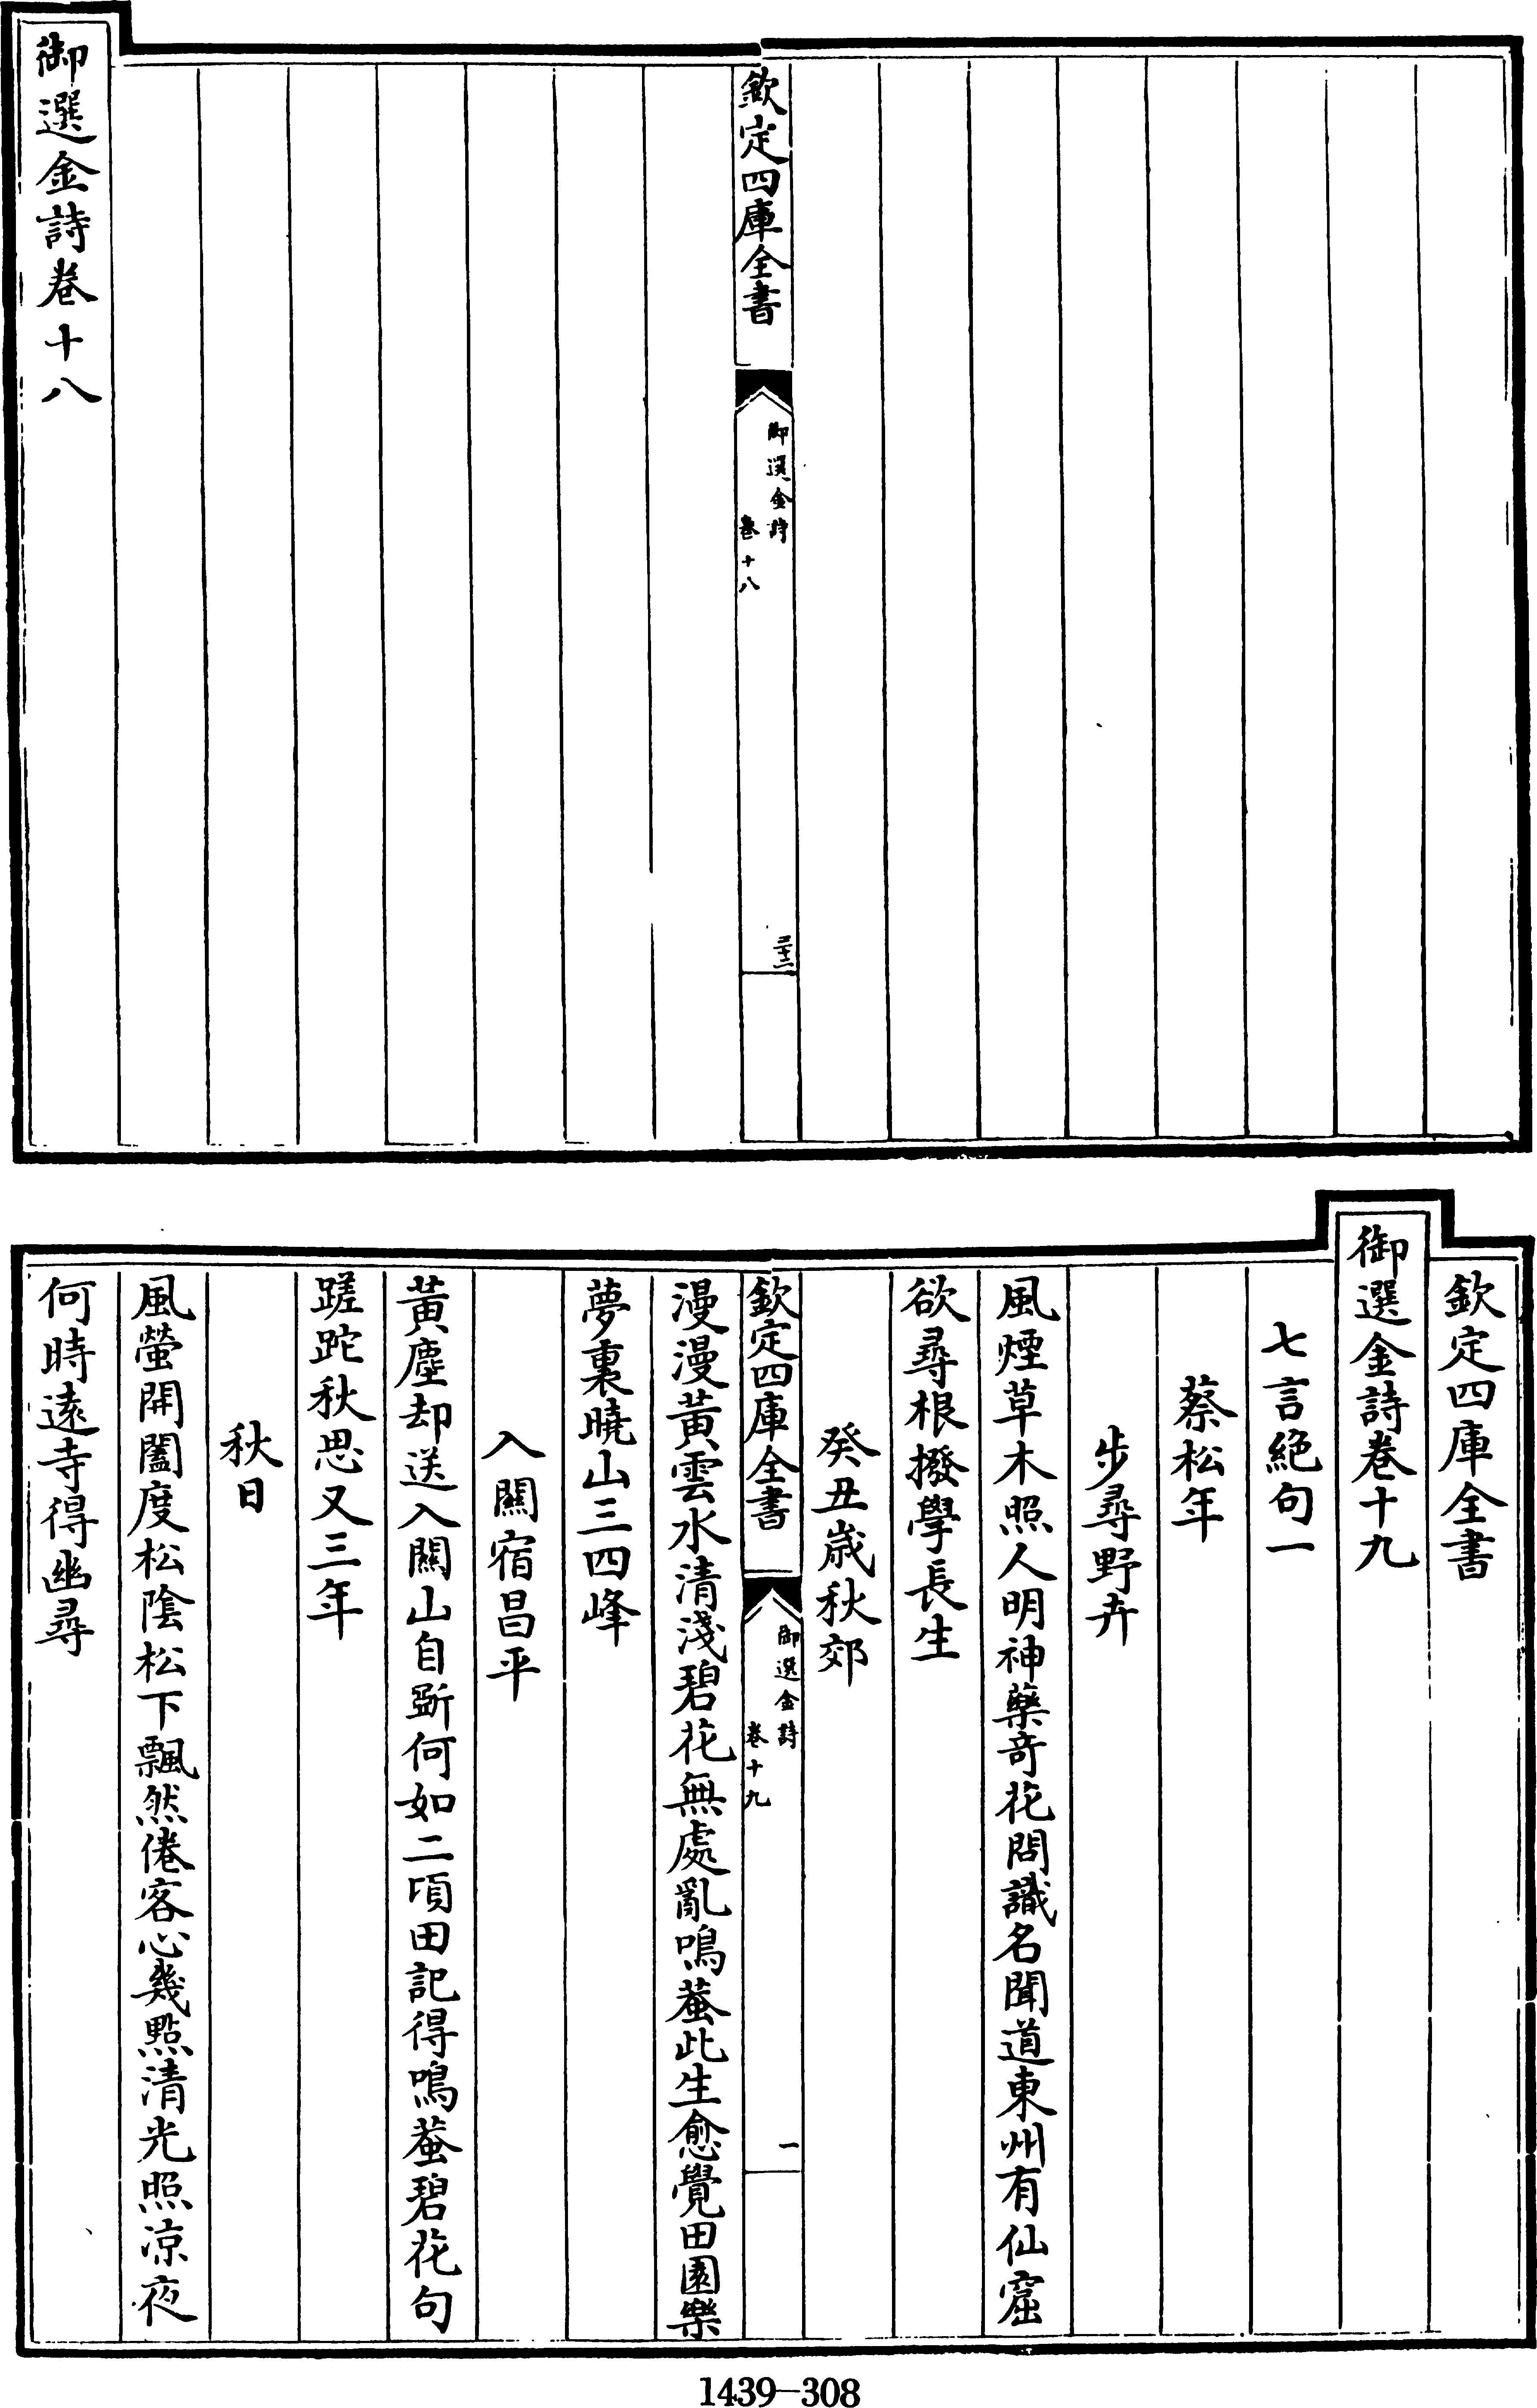 欽定四庫全書
御選金詩
卷十八
三十二
御選金詩卷十八
欽定四庫全書
御選金詩卷十九
七言絶句一
蔡松年
步尋野卉
風煙草木照人明神藥竒花問識名聞道東州有仙窟
欲尋根撥學長生
癸丑歲秋郊
欽定四庫全書
御選金詩
卷十九
一
漫漫黃雲水清淺碧花無處亂鳴蛬此生愈覺田園樂
夢裏曉山三四峰
入關宿昌平
黃塵却送入關山自斷何如二頃田記得鳴蛬碧花句
蹉跎秋思又三年
秋日
風螢開闔度松陰松下飄然倦客心幾點清光照涼夜
何時遠寺得幽尋
1439-308